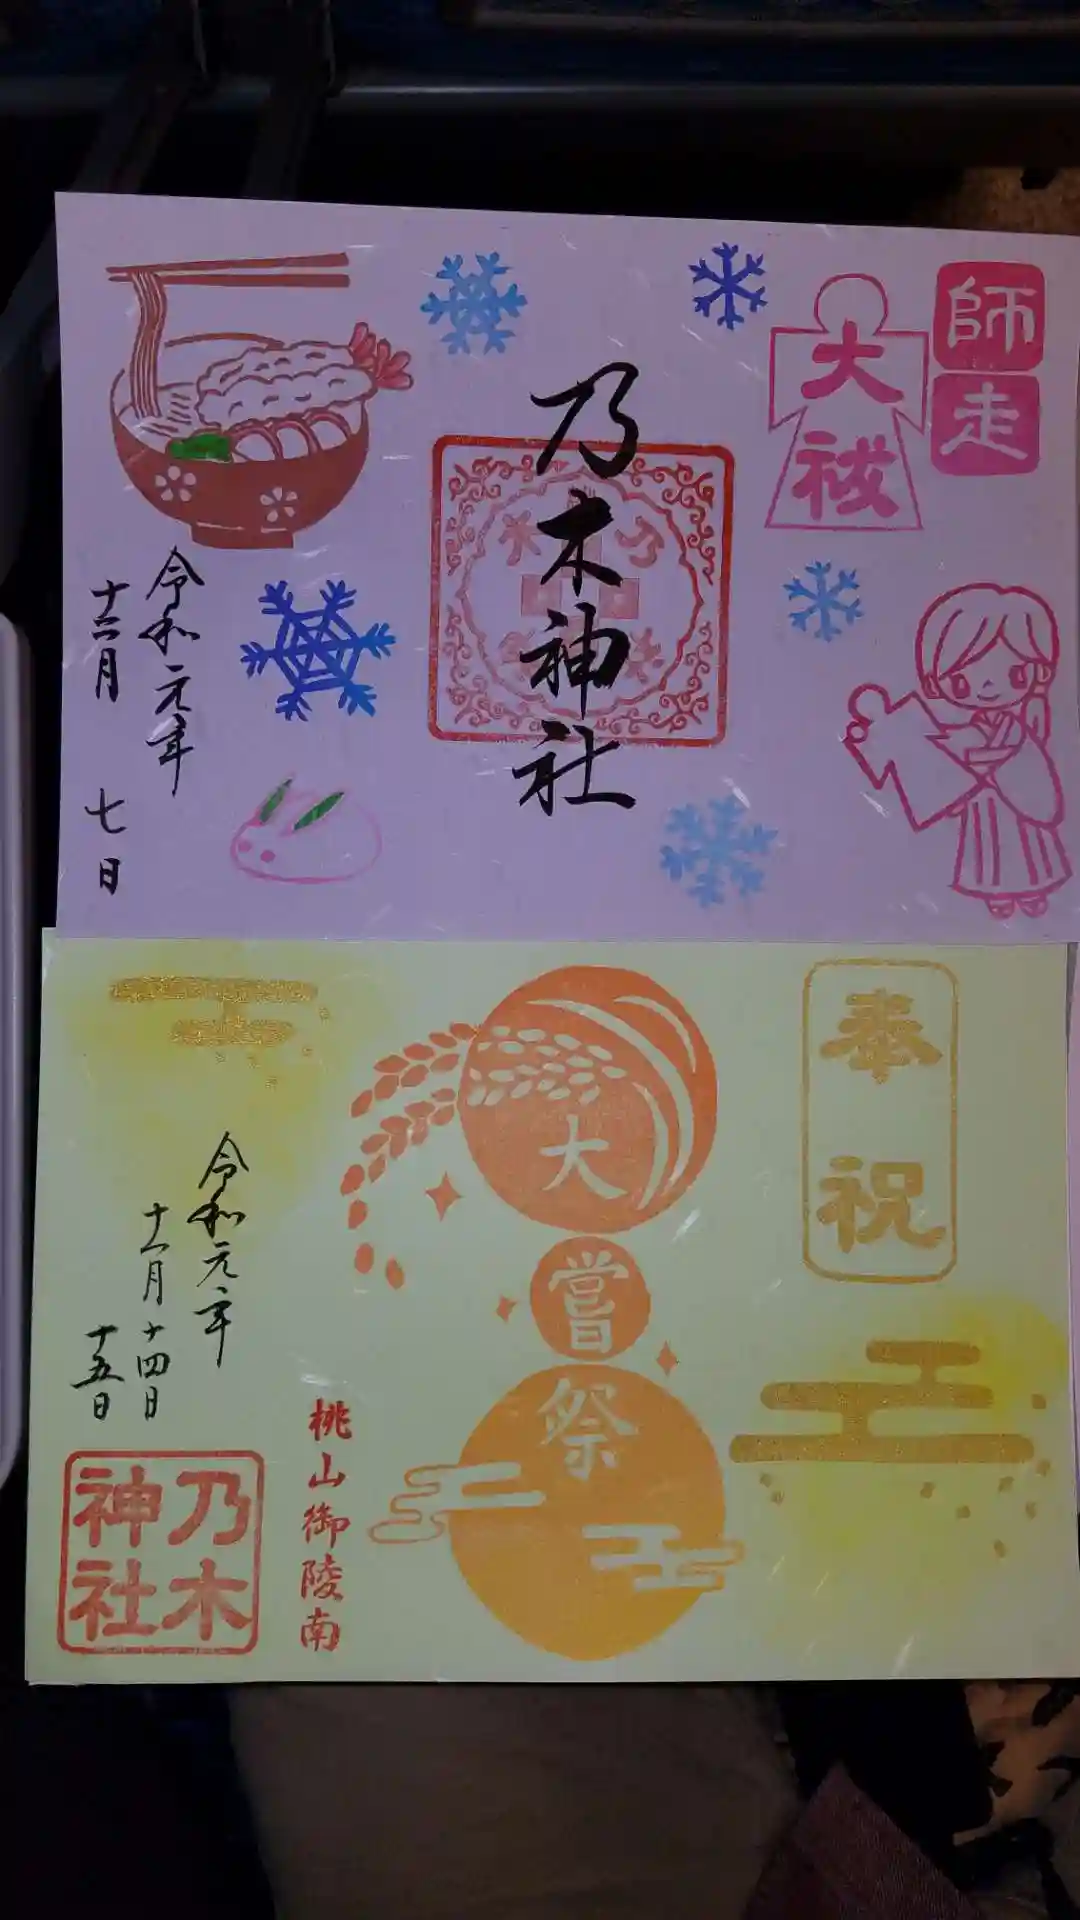 師走
大祓
乃木神社
令和元年
十二月 七日
奉祝
大嘗祭
桃山御陵南
令和元年
十一月十四日
十五日
乃木
神社